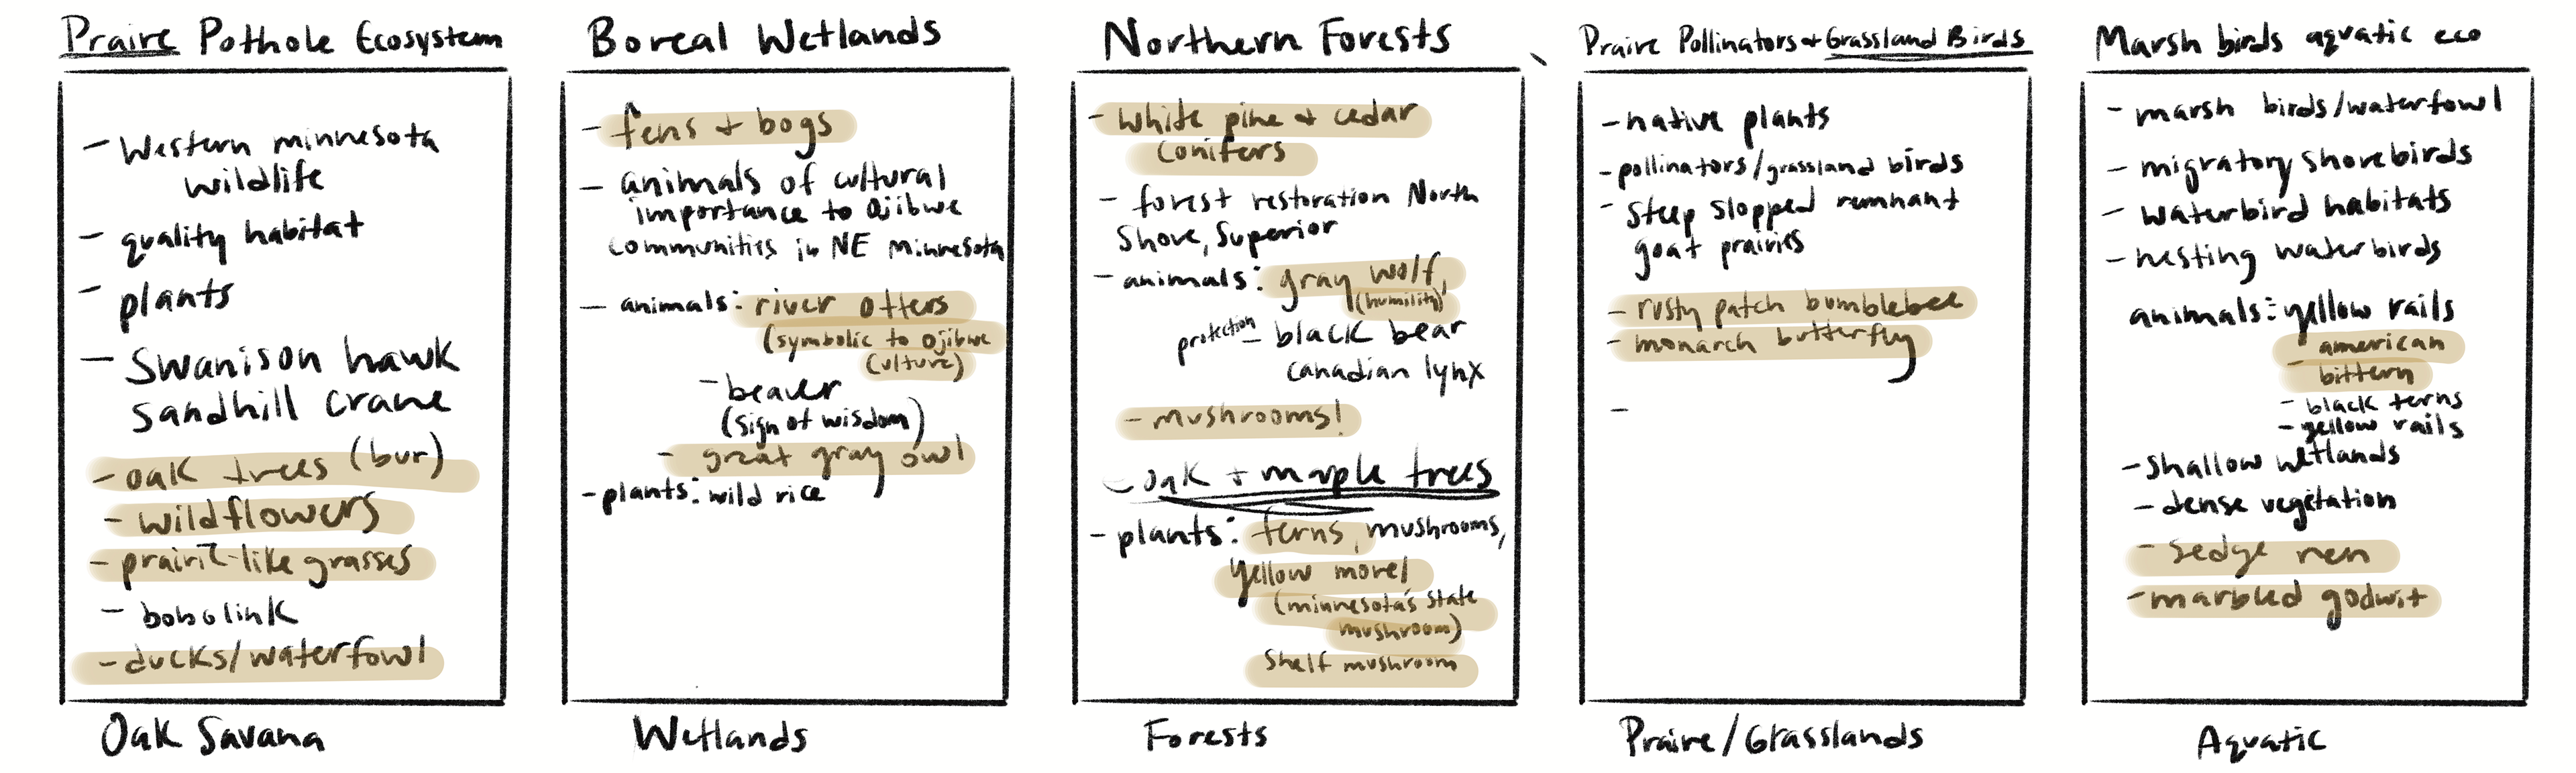 Praire Pothole Ecosystem
- Western minnesota
wildlife
- quality habitat
- plants
- Swanison hawk
Sandhill Crane
- oak trees (bur)
- wildflowers
- prairie-like grasses
- bobolink
- ducks/waterfowl
Oak Savana
Boreal Wetlands
- fens + bogs
- animals of cultural
importance to Ojibwe
communities in NE Minnesota
- animals: river otters
(symbolic to ojibwe
culture)
- beaver
(sign of wisdom)
- great gray owl
- plants: wild rice
Wetlands
Northern Forests
- white pine + cedar
conifers
- forest restoration North
Shore, Superior
- animals: gray wolf,
(humility)
protection - black bear
canadian lynx
- mushrooms!
- oak + maple trees
- plants: ferns, mushrooms,
yellow morel
(minnesota's state
mushroom)
Shelf mushroom
Forests
Praire Pollinators + Grassland Birds
- native plants
- pollinators/grassland birds
- steep slopped remnant
goat prairies
- rusty patch bumblebee
- monarch butterfly
-
Praire/Grasslands
Marsh birds aquatic eco
- marsh birds/waterfowl
- migratory shorebirds
- waterbird habitats
- nesting waterbirds
animals: yellow rails
american
- bittern
- black terns
- yellow rails
- shallow wetlands
- dense vegetation
- sedge wren
- marbled godwit
Aquatic